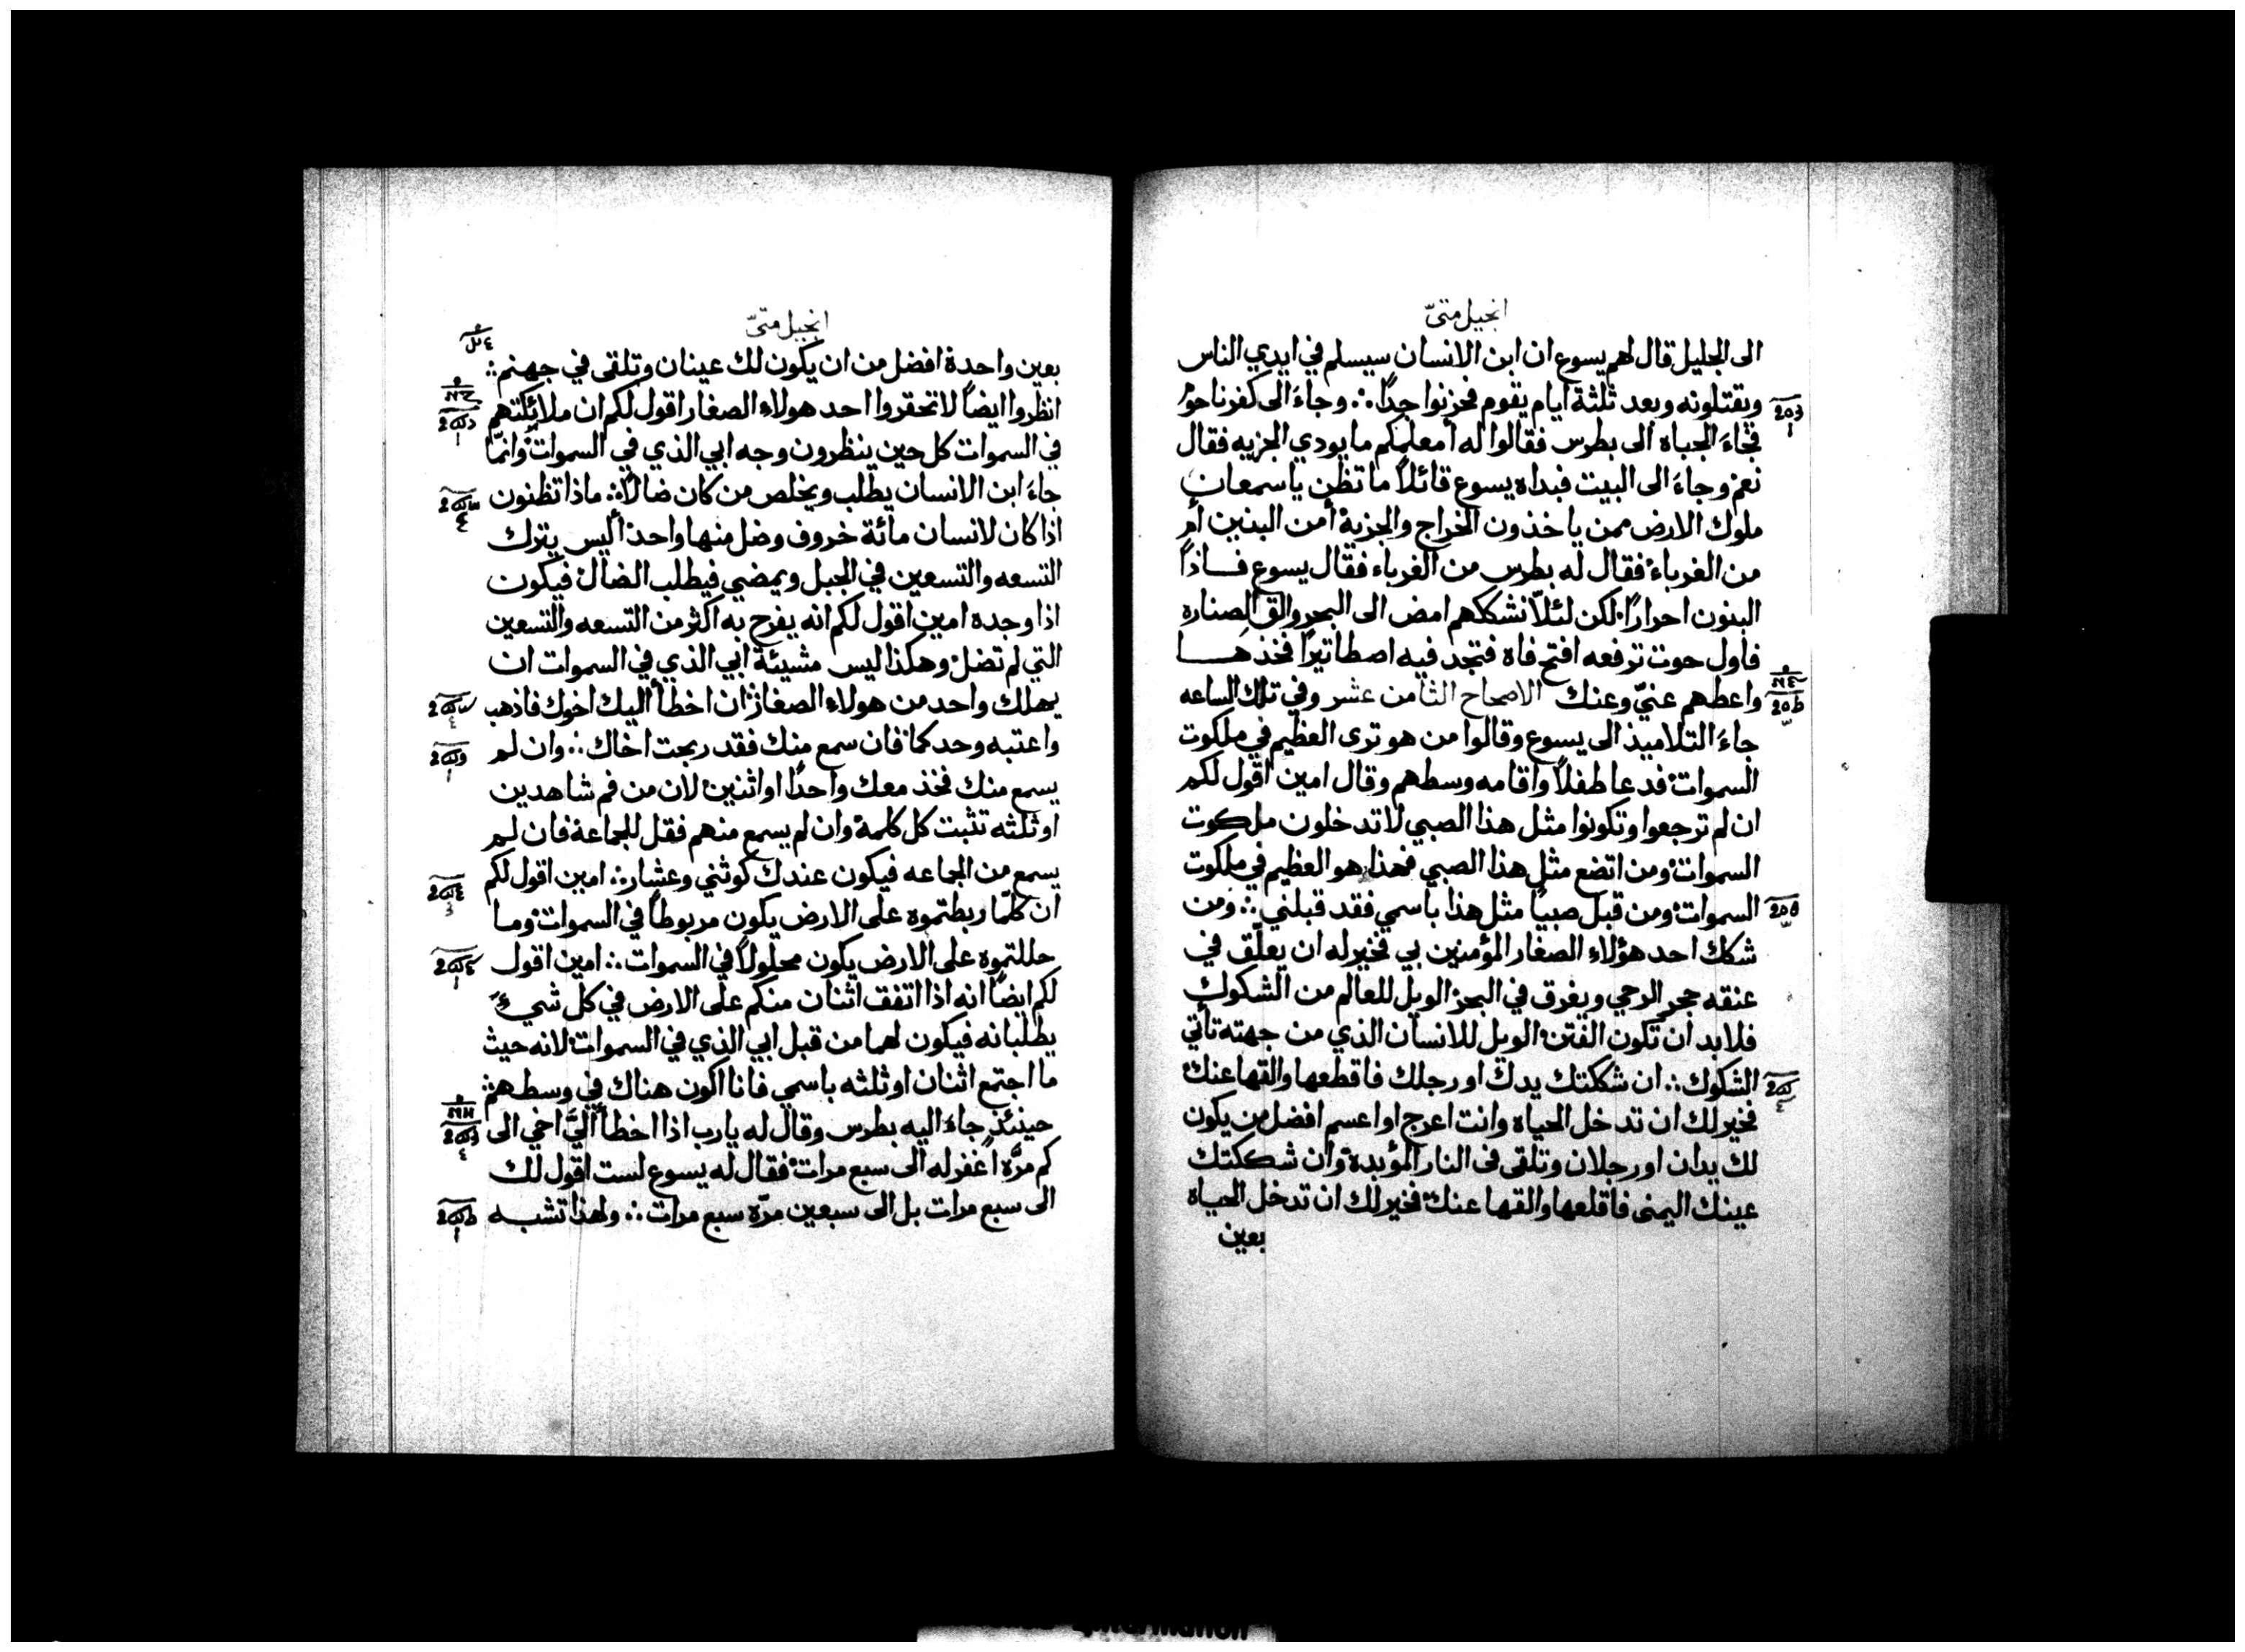 انجيل متىّ
الى الجليل قال لهم يسوع ان ابن الانسان سيسلم في ايدي الناس
ويقتلونه وبعد ثلثة ايام يقوم فحزنوا جدًا ∴ وجاءَ الى كفرناحوم
فجاءَ الجباه الى بطرس فقالوا له أمعلمكم ما يودي الجزيه فقال
نعم وجاءَ الى البيت فبداه يسوع قائلاً ما تظن ياسمعان
ملوك الارض ممن ياخذون الخراج والجزية أمن البنين أم
من الغرباء فقال له بطرس من الغرباء فقال يسوع فاذاً
البنون احرارًا لكن لئلاّ نشككهم امض الى البحر والق الصناره
فاول حوت ترفعه افتح فاه فتجد فيه اصطاتيرًا فخذها
واعطهم عنيّ وعنك الاصحاح الثامن عشر وفي تلك الساعه
جاءَ التلاميذ الى يسوع وقالوا من هو ترى العظيم في ملكوت
السموات فدعا طفلاً واقامه وسطهم وقال امين اقول لكم
ان لم ترجعوا وتكونوا مثل هذا الصبي لا تدخلون ملكوت
السموات ومن اتضع مثل هذا الصبي فهذا هو العظيم في ملكوت
السموات ومن قبل صبيًا مثل هذا باسمي فقد قبلني ∴ ومن
شكك احد هؤلاء الصغار المؤمنين بي فخير له ان يعلّق في
عنقه حجر الرحي ويغرق في البحر الويل للعالم من الشكوك
فلا بد ان تكون الفتن الويل للانسان الذي من جهته تاتي
الشكوك ∴ ان شككتك يدك او رجلك فاقطعها والقها عنك
فخير لك ان تدخل الحياه وانت اعرج او اعسم افضل من يكون
لك يدان او رجلان وتلقى في النار المؤبدة وان شككتك
عينك اليمنى فاقلعها والقها عنك فخير لك ان تدخل الحياه
بعين
انجيل متىّ
بعين واحدة افضل من ان يكون لك عينان وتلقى في جهنم ∴
انظروا ايضاً لا تحقروا احد هولاء الصغار اقول لكم ان ملائكتهم
في السموات كل حين ينظرون وجه ابي الذي في السموات وانمّا
جاءَ ابن الانسان يطلب ويخلص من كان ضالاً ∴ ماذا تظنون
اذا كان لانسان مائة خروف وضل منها واحد أليس يترك
التسعه والتسعين في الجبل ويمضي فيطلب الضال فيكون
اذا وجده امين اقول لكم انه يفرح به اكثر من التسعه والتسعين
التي لم تضل وهكذا ليس مشيئة ابي الذي في السموات ان
يهلك واحد من هولاء الصغار ان اخطأ اليك اخوك فاذهب
واعتبه وحدكما فان سمع منك فقد ربحت اخاك ∴ وان لم
يسمع منك فخذ معك واحدًا او اثنين لان من فم شاهدين
او ثلثه تثبت كل كلمة وان لم يسمع منهم فقل للجماعة فان لم
يسمع من الجماعه فيكون عندك كوثني وعشار ∴ امين اقول لكم
ان كلّما ربطتموه على الارض يكون مربوطاً في السموات وما
حللتموه على الارض يكون محلولاً في السموات ∴ امين اقول
لكم ايضاً انه اذا اتفق اثنان منكم على الارض في كل شيء
يطلبانه فيكون لهما من قبل ابي الذي في السموات لانه حيث
ما اجتمع اثنان او ثلثه باسمي فانا اكون هناك في وسطهم ∴
حينئذٍ جاءَ اليه بطرس وقال له يارب اذا اخطأ اليَّ اخي الى
كم مرَّة اغفر له الى سبع مرات فقال له يسوع لست اقول لك
الى سبع مرات بل الى سبعين مرّه سبع مرات ∴ ولهذا تشبه